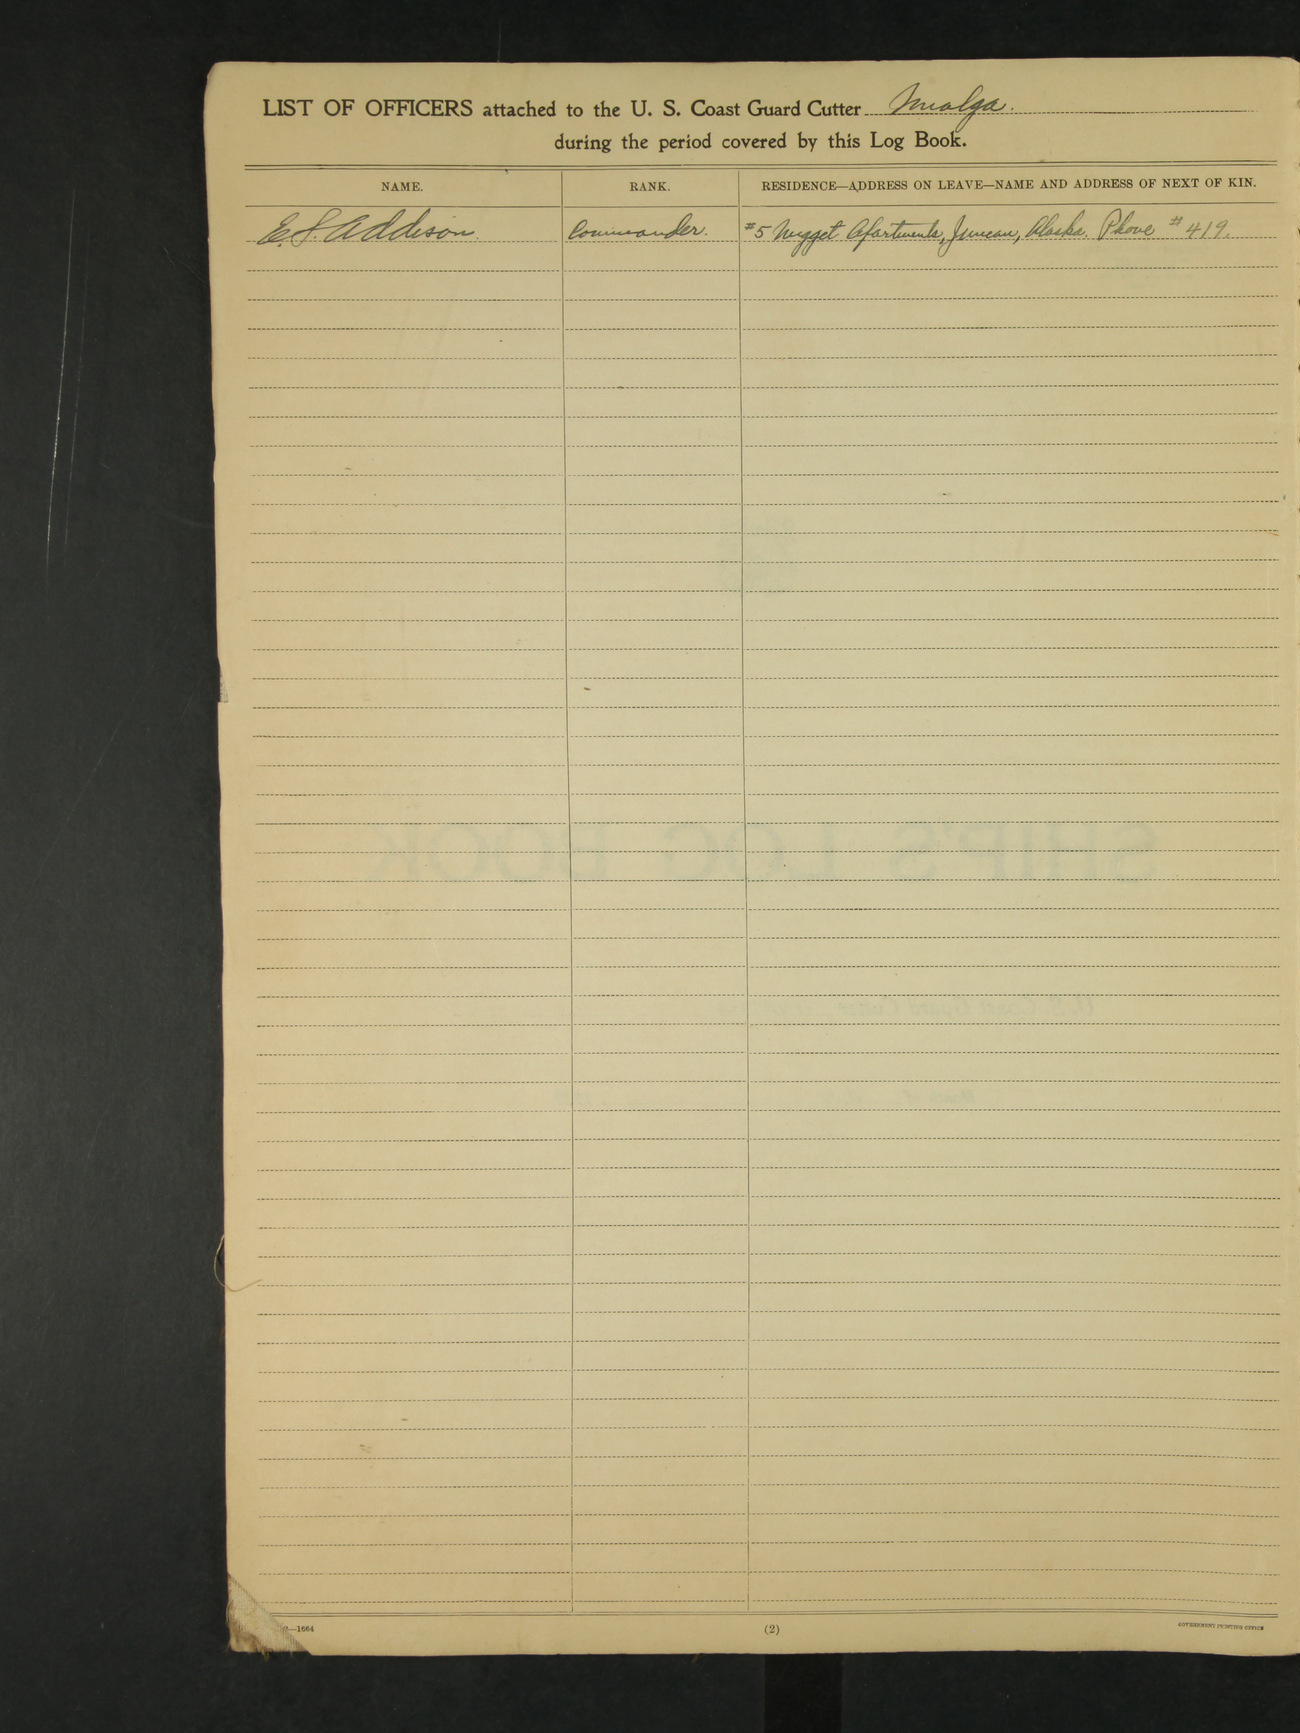 LIST OF OFFICERS attached to the U. S. Coast Guard Cutter Unalga.
during the period covered by this Log Book.
NAME. RANK. RESIDENCE—ADDRESS ON LEAVE—NAME AND ADDRESS OF NEXT OF KIN.
E. S. Addison. Commander. #5 Nugget Apartments, Juneau, Alaska. Phone #419.
SHIP'S LOG BOOK
U. S. Coast Guard Cutter
2—1664 (2) GOVERNMENT PRINTING OFFICE